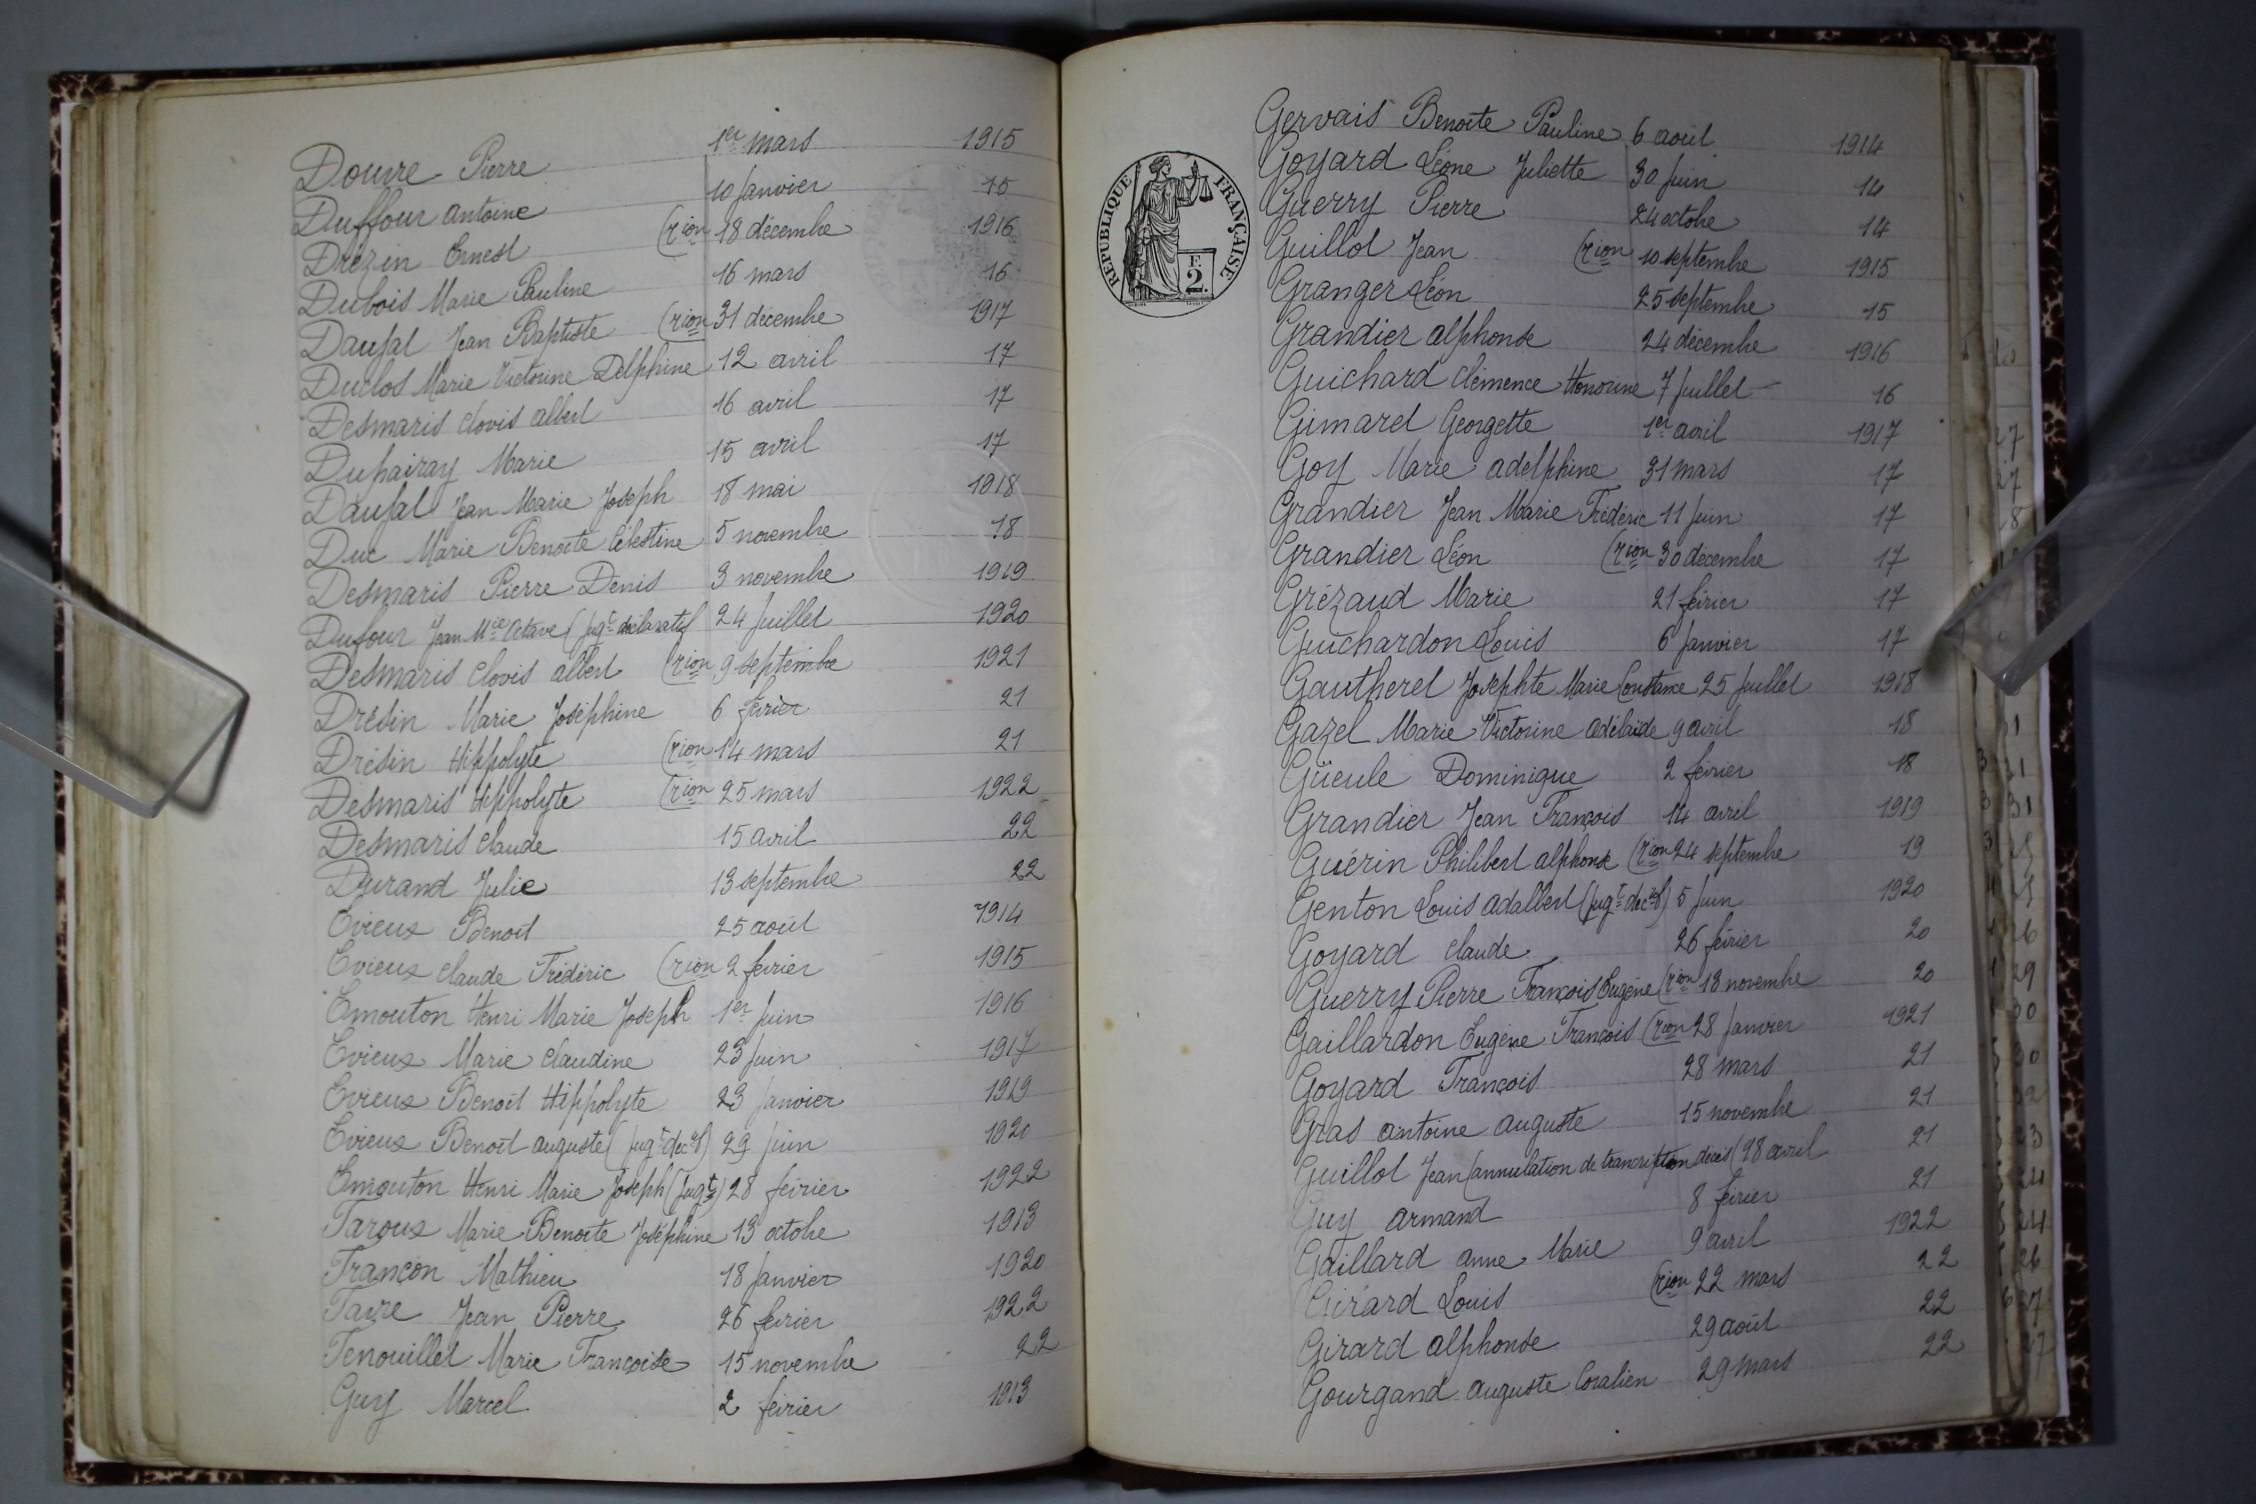 Douvre Pierre 1er mars 1915
Duffour antoine 10 Janvier 15
Drézin Ernest (Trion 18 décembre 1916
Dubois Marie Pauline 16 mars 16
Daujat Jean Baptiste (Trion 31 décembre 1917
Duclos Marie Victorine Delphine 12 avril 17
Desmaris Clovis albert 16 avril 17
Dupairay Marie 15 avril 17
Daujat Jean Marie Joseph 18 mai 1918
Duc Marie Benoîte Célestine 5 novembre 18
Desmaris Pierre Denis 3 novembre 1919
Dufour Jean Mie Octave (jugt déclaratif 24 Juillet 1920
Desmaris Clovis albert (Trion 9 septembre 1921
Drésin Marie Joséphine 6 février 21
Drésin Hippolyte (Trion 14 mars 21
Desmaris Hippolyte (Trion 25 mars 1922
Desmaris Claude 15 avril 22
Durand Julie 13 septembre 22
Evieux Benoît 25 août 1914
Evieux Claude Frédéric (Trion 2 février 1915
Emouton Henri Marie Joseph 1er Juin 1916
Evieux Marie Claudine 23 Juin 1917
Evieux Benoît Hippolyte 23 Janvier 1919
Evieux Benoît auguste (jugt decif) 29 Juin 1920
Emouton Henri Marie Joseph (Jugt) 28 février 1922
Faroux Marie Benoîte Joséphine 13 octobre 1913
Françon Mathieu 18 Janvier 1920
Favre Jean Pierre 26 février 1922
Fenouillet Marie Françoise 15 novembre 22
Guy Marcel 2 février 1913
RÉPUBLIQUE FRANÇAISE
F.
2.
Gervais Benoîte Pauline 6 août 1914
Goyard Léone Juliette 30 Juin 14
Guerry Pierre 24 octobre 14
Guillot Jean (Trion 10 septembre 1915
Granger Léon 25 septembre 15
Grandier alphonse 24 décembre 1916
Guichard Clémence Honorine 7 Juillet 16
Gimaret Georgette 1er avril 1917
Goy Marie adelphine 31 mars 17
Grandier Jean Marie Frédéric 11 Juin 17
Grandier Léon (Trion 30 decembre 17
Grézaud Marie 21 février 17
Guichardon Louis 6 Janvier 17
Gautheret Josephte Marie Constance 25 Juillet 1918
Gazel Marie Victorine adélaïde 9 avril 18
Güeule Dominique 2 février 18
Grandier Jean François 14 avril 1919
Guérin Philibert alphonse (Trion 24 septembre 19
Genton Louis adalbert (Jugt decif) 5 Juin 1920
Goyard Claude 26 février 20
Guerry Pierre François Eugène (Trion 13 novembre 20
Gaillardon Eugène François (Trion 28 Janvier 1921
Goyard François 28 mars 21
Gras antoine auguste 15 novembre 21
Guillot Jean (annulation de transcription décès) 28 avril 21
Guy armand 8 février 21
Gaillard anne Marie 9 avril 1922
Girard Louis (Trion 22 mars 22
Girard alphonse 29 août 22
Gourgand auguste Coralien 29 mars 22